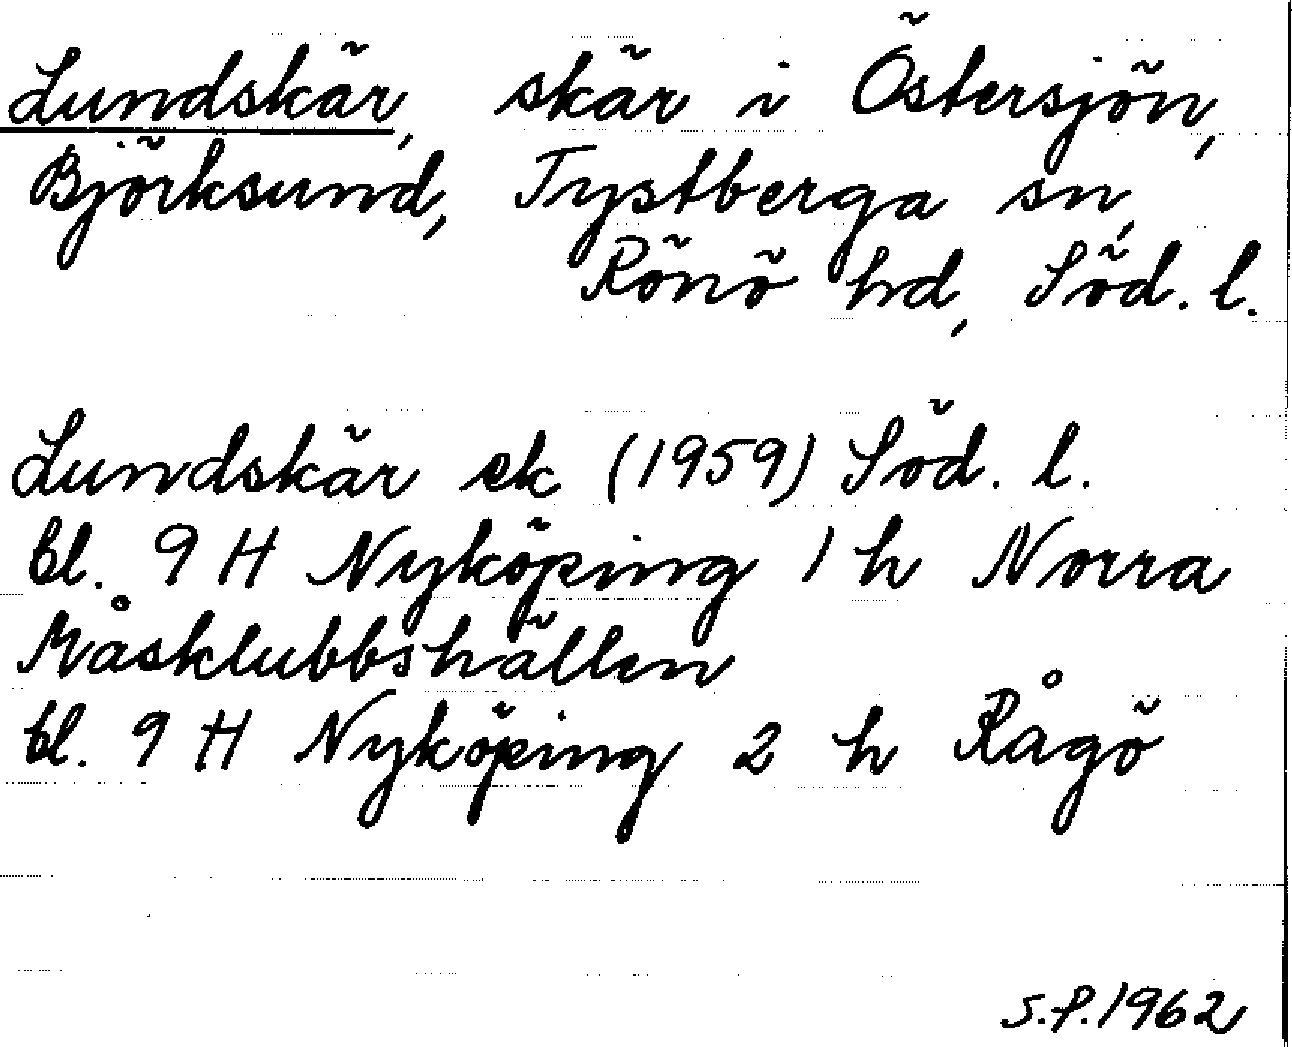 Lundskär, skär i Östersjön,
Björksund, Tystberga sn,
Rönö hd, Söd. l.
Lundskär ek (1959) Söd. l.
bl. 9 H Nyköping 1 h Norra
Måsklubbshällen
bl. 9 H Nyköping 2 h Rågö
S.P. 1962